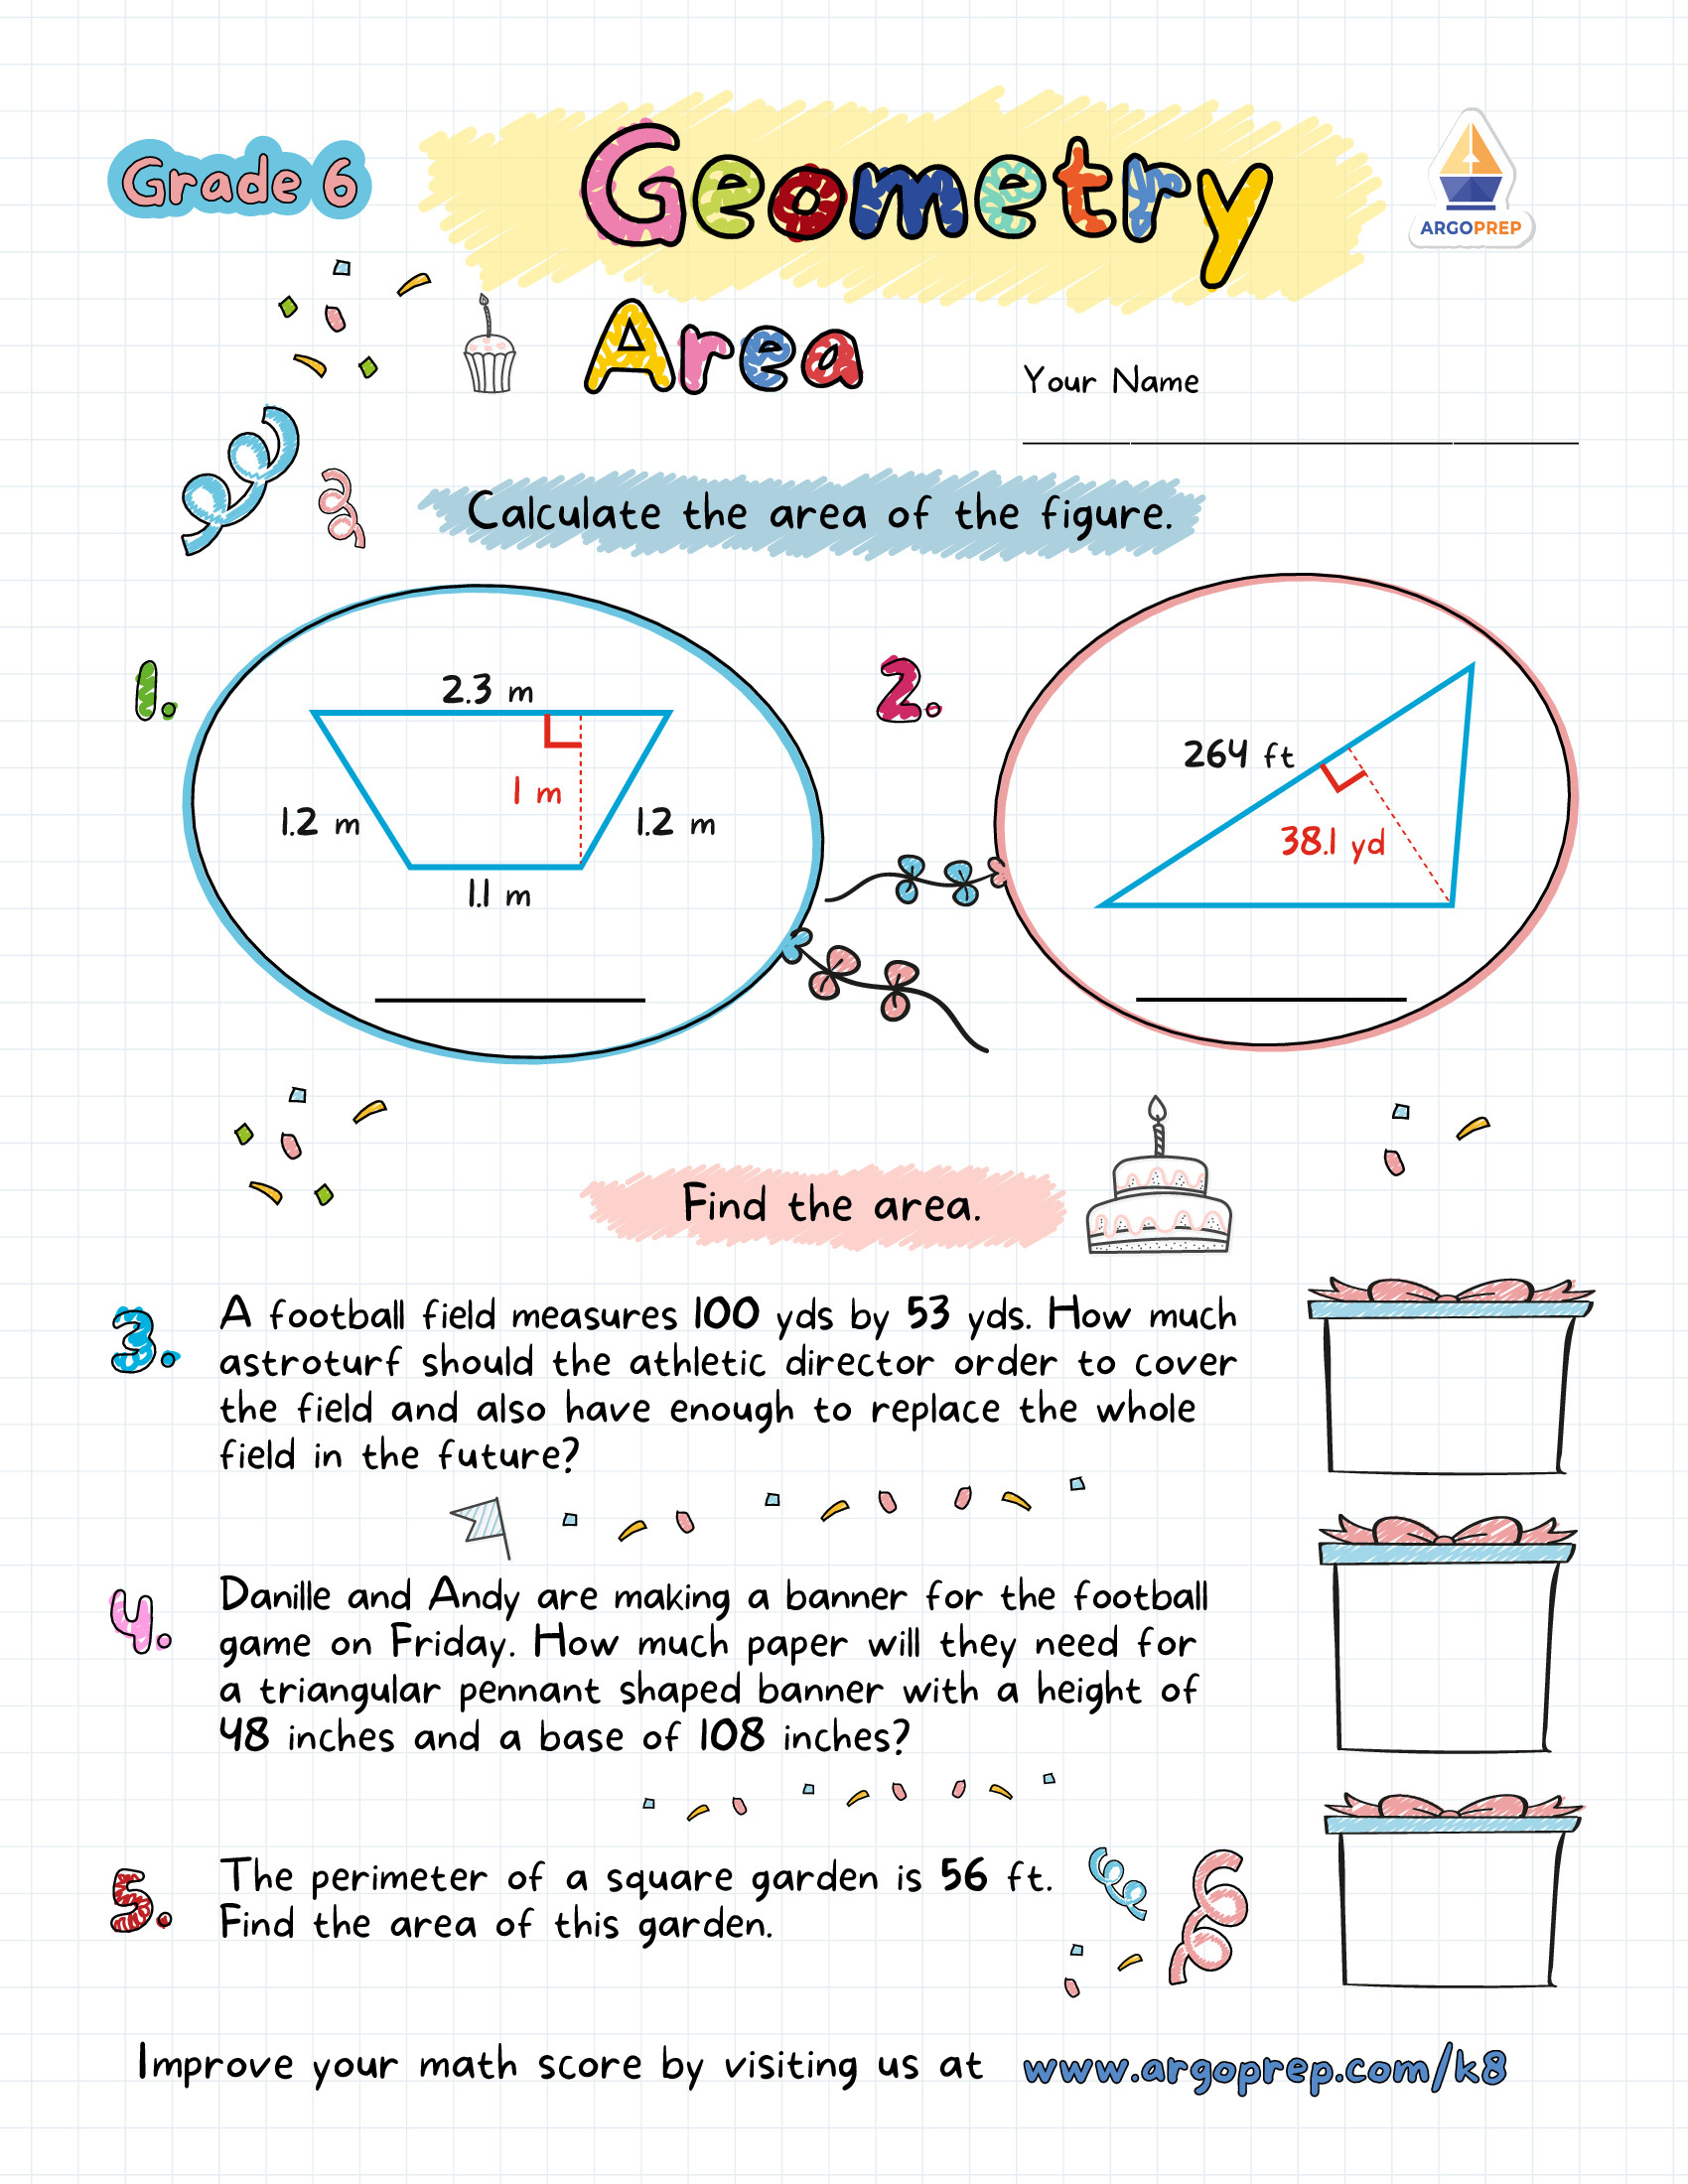 Grade 6
Geometry
ARGOPREP
Area
Your Name
Calculate the area of the figure.
1.
2.3 m
1 m
1.2 m
1.2 m
1.1 m
2.
264 ft
38.1 yd
Find the area.
3.
A football field measures 100 yds by 53 yds. How much
astroturf should the athletic director order to cover
the field and also have enough to replace the whole
field in the future?
4.
Danille and Andy are making a banner for the football
game on Friday. How much paper will they need for
a triangular pennant shaped banner with a height of
48 inches and a base of 108 inches?
5.
The perimeter of a square garden is 56 ft.
Find the area of this garden.
Improve your math score by visiting us at www.argoprep.com/k8